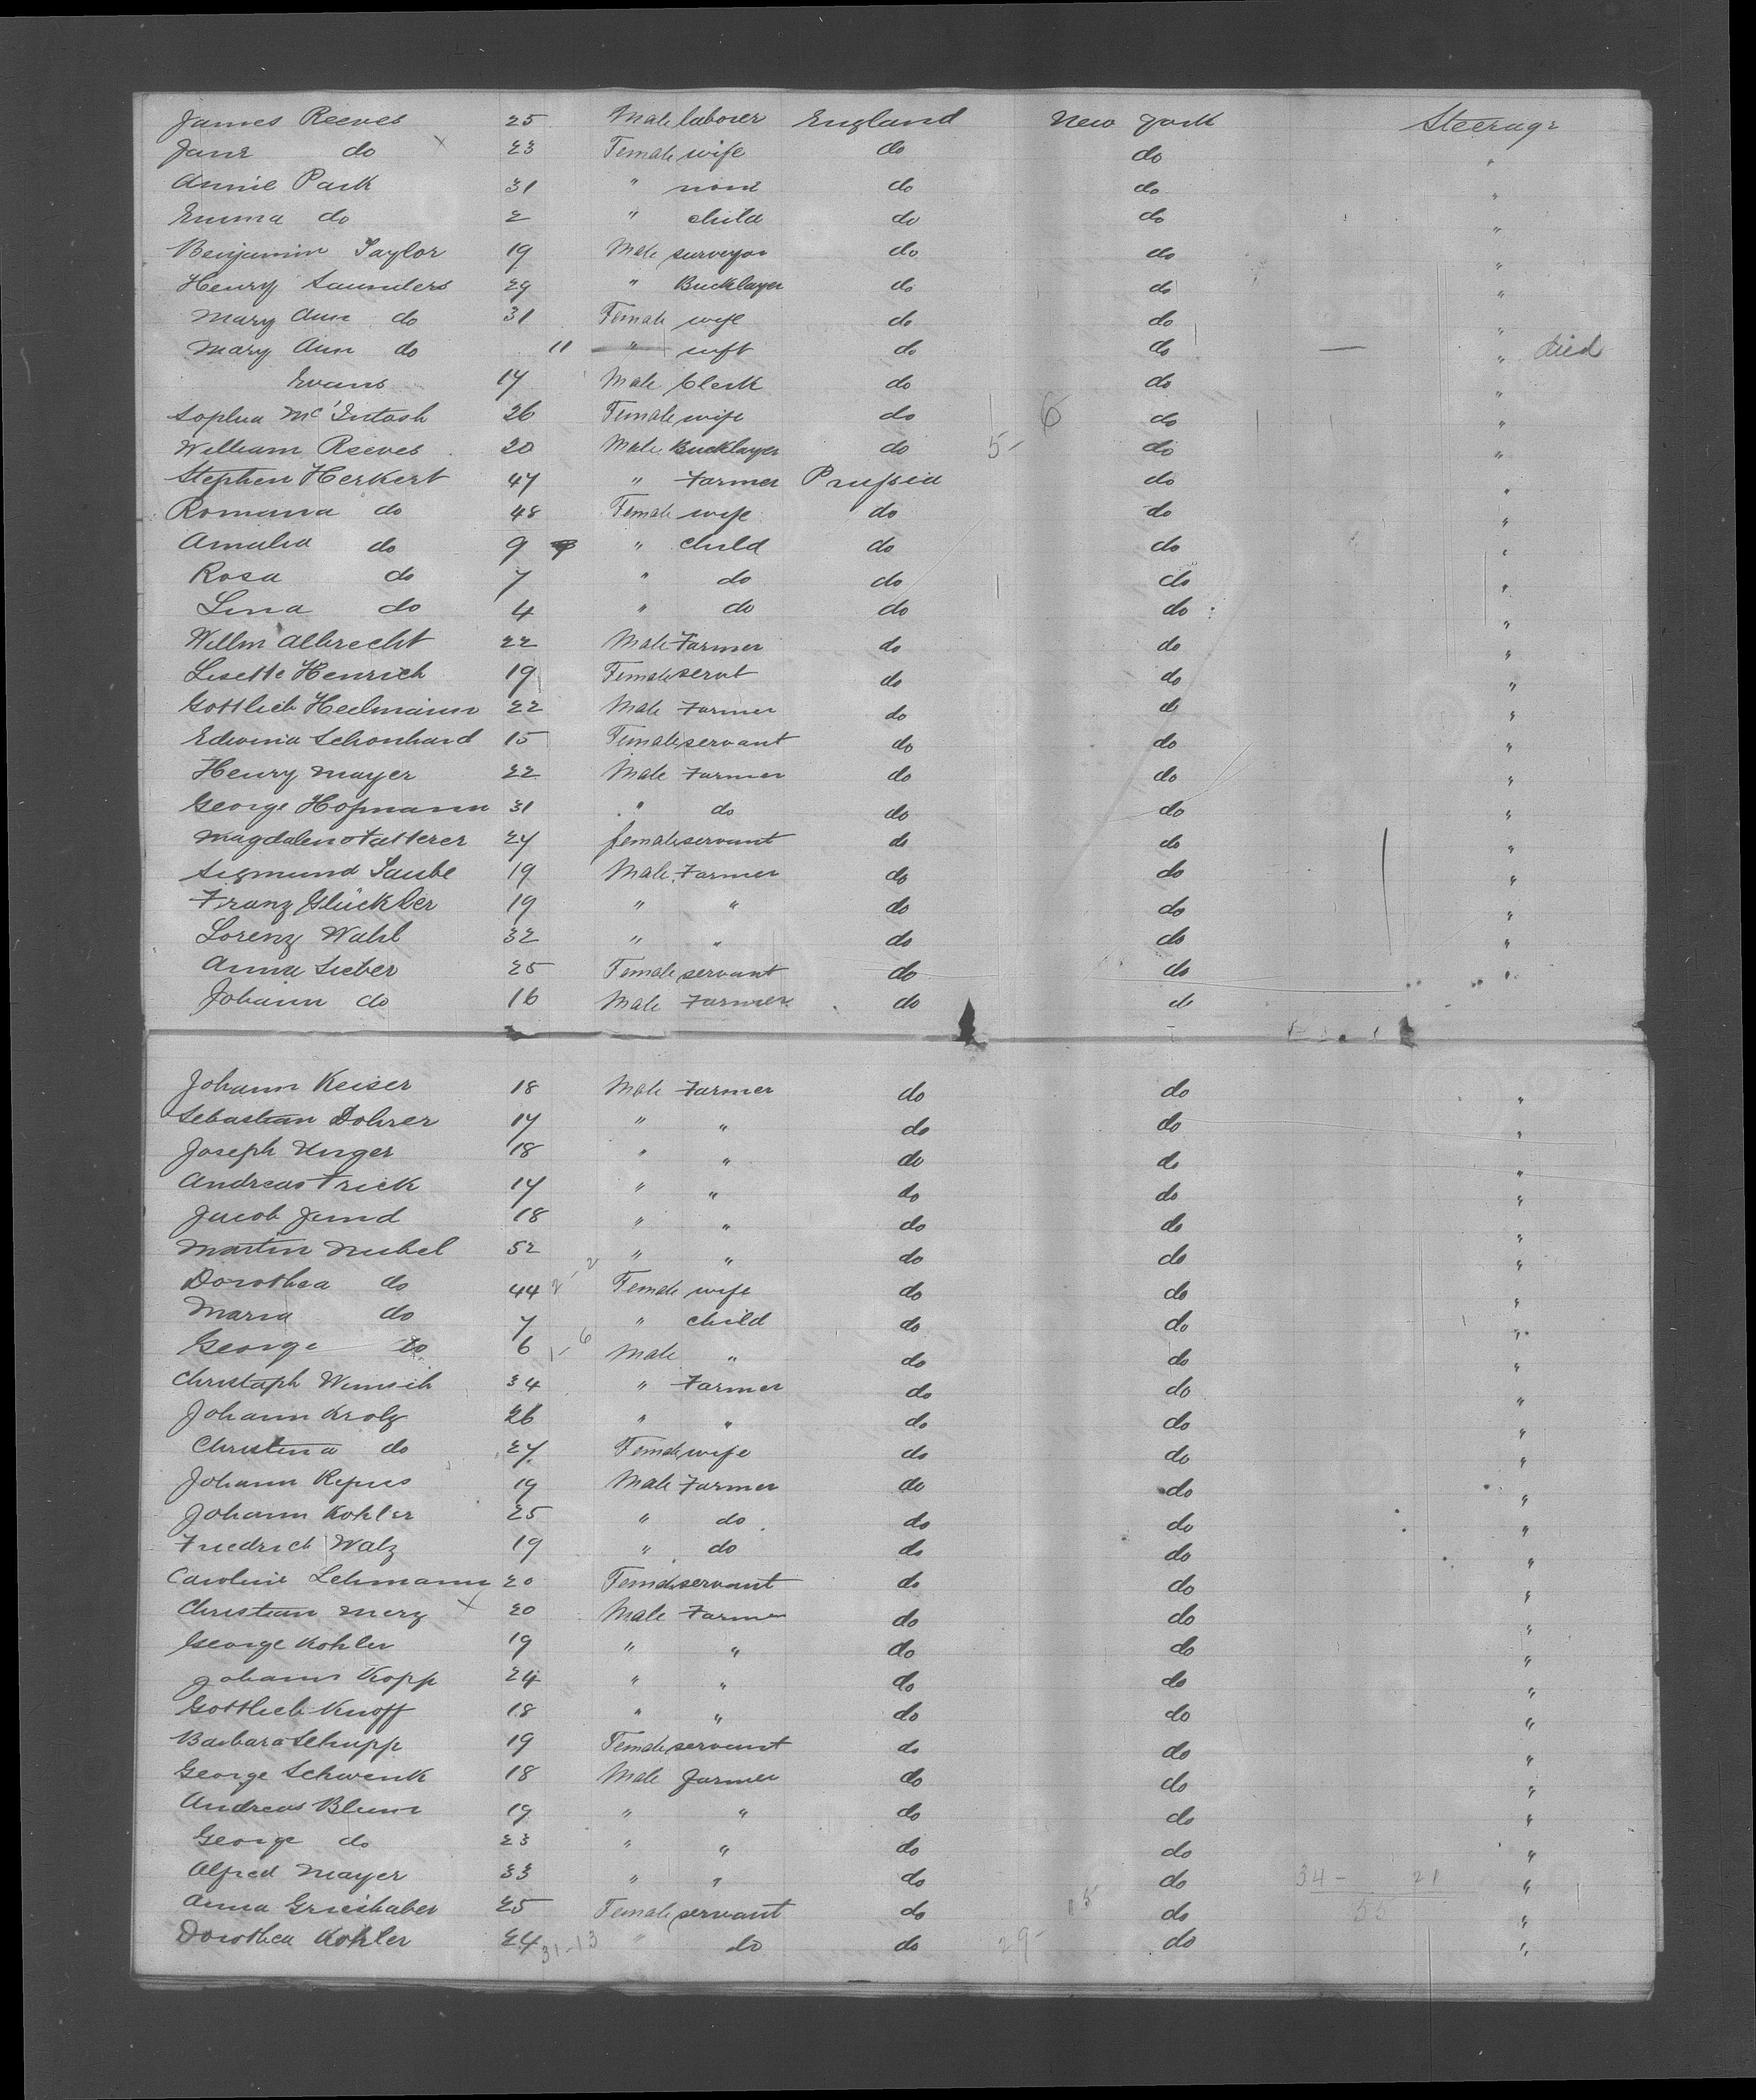 James Reeves 25 Male laborer England New York Steerage
Jane do 23 Female wife do do "
Annie Park 31 " none do do "
Emma do 2 " child do do "
Benjamin Taylor 19 Male surveyor do do "
Henry Saunders 29 " Bricklayer do do "
Mary Ann do 31 Female wife do do "
Mary Ann do 11 " inft do do — " died
Evans 17 Male Clerk do do "
Sophia McIntosh 26 Female wife do 6 do "
William Reeves 20 Male Bricklayer do 5- do "
Stephen Herkert 47 " Farmer Prussia do "
Romana do 48 Female wife do do "
Amalia do 9 " child do do "
Rosa do 7 " do do do "
Lina do 4 " do do do "
Willm Albrecht 22 Male Farmer do do "
Lisette Henrich 19 Female servt do do "
Gottlieb Heilmann 22 Male Farmer do do "
Edwina Schonhard 15 Female servant do do "
Henry Mayer 22 Male Farmer do do "
George Hofmann 31 " do do do "
Magdalena 27 female servant do do "
Sigmund Taube 19 Male Farmer do do "
Franz Glückler 19 " " do do "
Lorenz Wahl 32 " " do do "
Anna Sieber 25 Female servant do do "
Johann do 16 Male Farmer do do
Johann Keiser 18 Male Farmer do do "
Sebastian Dohrer 17 " " do do "
Joseph Unger 18 " " do do "
Andreas Frick 17 " " do do "
Jacob Jund 18 " " do do "
Martin Nubel 52 " " do do "
Dorothea do 44 Female wife do do "
Maria do 7 " child do do "
George do 6 Male " do do "
Christoph 34 " Farmer do do "
Johann Krolz 26 " " do do "
Christina do 27 Female wife do do "
Johann 19 Male Farmer do do "
Johann Kohler 25 " do do do "
Friedrich Walz 19 " do do do "
Caroline Lehmann 20 Female servant do do "
Christian Merz 20 Male Farmer do do "
George Kohler 19 " " do do "
Johann Kopp 24 " " do do "
Gottlieb Knoff 18 " " do do "
Barbara Schupp 19 Female servant do do "
George Schwenk 18 Male Farmer do do "
Andreas Blum 19 " " do do "
George do 23 " " do do "
Alfred Mayer 33 " " do do 34- 21 "
Anna Grieshaber 25 Female servant do do 55 "
Dorothea Kohler 24 31-13 " do do 29- do "